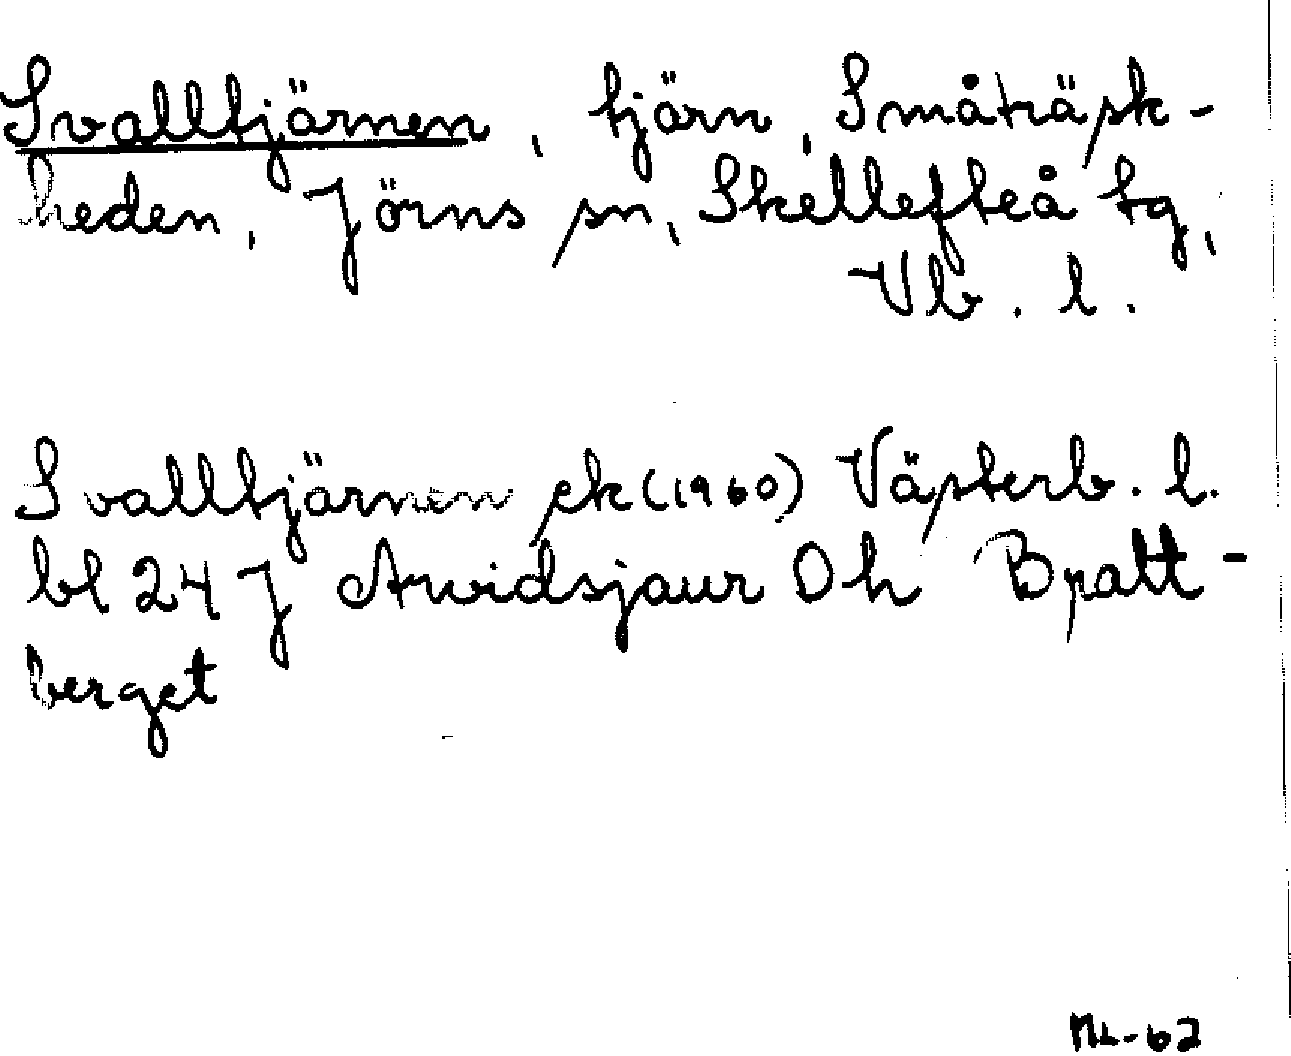 Svalltjärnen, tjärn, Småträsk-
heden, Jörns sn, Skellefteå tg,
Vb. l.
Svalltjärnen ek (1960) Västerb. l.
bl 24 J Arvidsjaur 0 h Bratt-
berget
ML-62